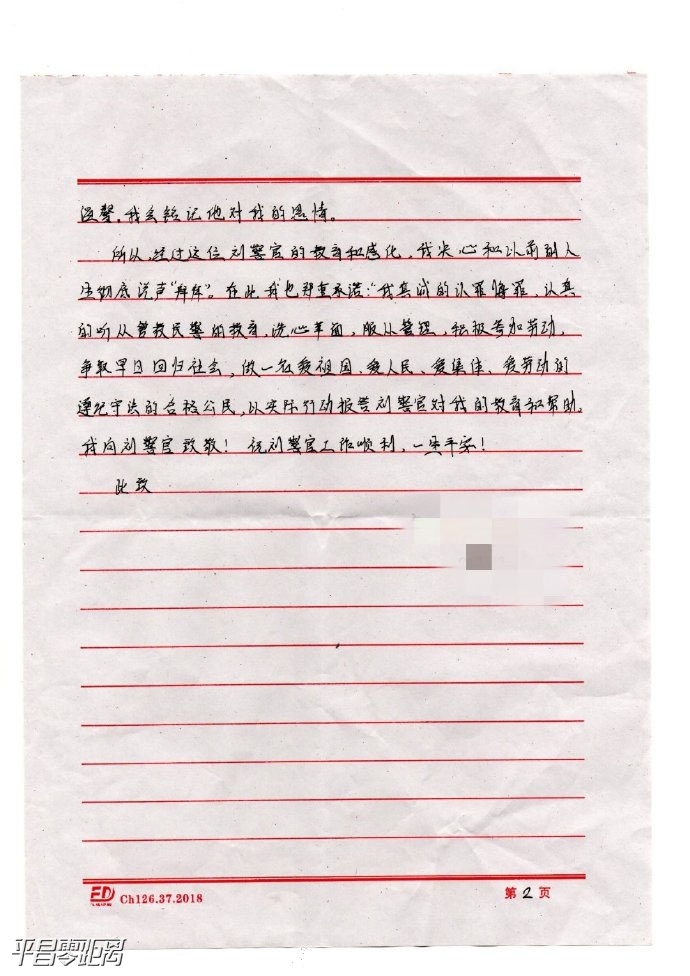 温馨，我会铭记他对我的恩情。
所以，经过这位刘警官的教育和感化，我决心和以前的人
生彻底说声“拜拜”。在此我也郑重承诺：“我真诚的认罪悔罪，认真
的听从管教民警的教育，洗心革面，服从管理，积极参加劳动，
争取早日回归社会，做一名爱祖国、爱人民、爱集体、爱劳动的
遵纪守法的合格公民，以实际行动报答刘警官对我的教育和帮助。
我向刘警官致敬！祝刘警官工作顺利，一生平安！
此致
ED Ch126.37.2018
第2页
平昌零距离